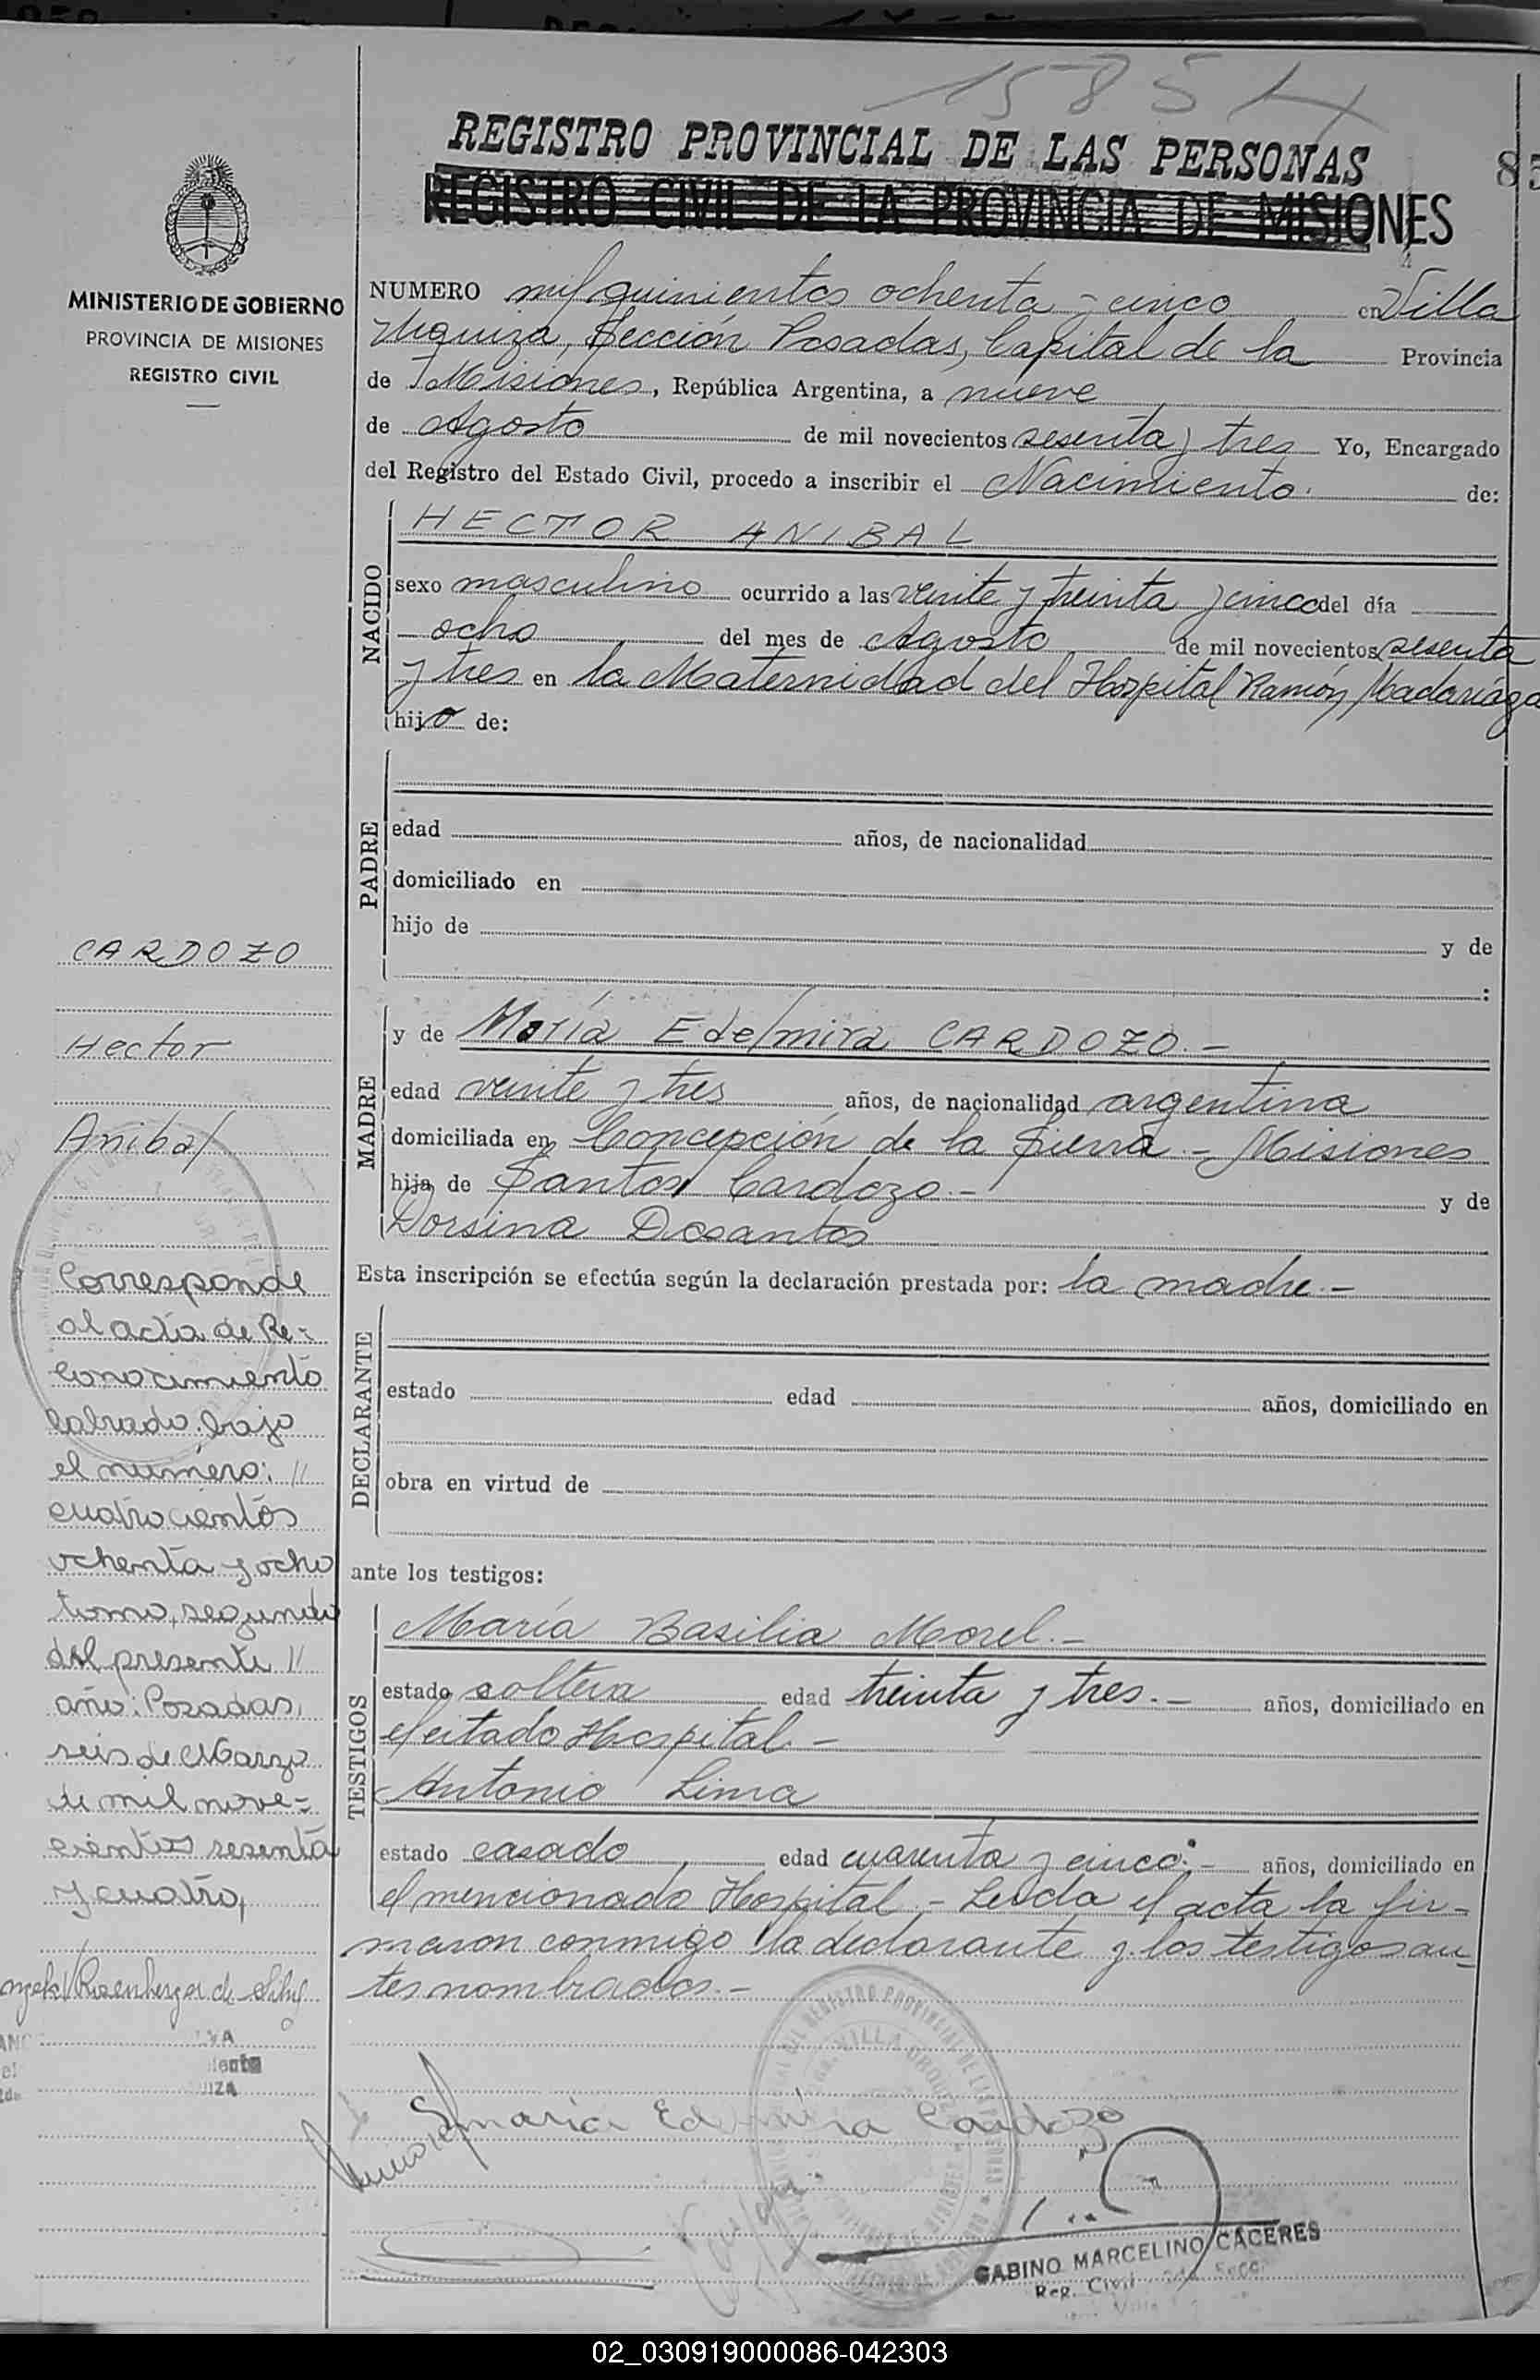 1585
REGISTRO PROVINCIAL DE LAS PERSONAS
85
REGISTRO CIVIL DE LA PROVINCIA DE MISIONES
MINISTERIO DE GOBIERNO
PROVINCIA DE MISIONES
REGISTRO CIVIL
NUMERO mil quinientos ochenta y cinco en Villa
Urquiza, Sección Posadas, Capital de la Provincia
de Misiones, República Argentina, a nueve
de Agosto de mil novecientos sesenta y tres Yo, Encargado
del Registro del Estado Civil, procedo a inscribir el Nacimiento. de:
NACIDO
HECTOR ANIBAL
sexo masculino ocurrido a las veinte y treinta y cinco del día
ocho del mes de Agosto de mil novecientos sesenta
y tres en la Maternidad del Hospital Ramón Madariaga
hijo de:
PADRE
edad años, de nacionalidad
domiciliado en
hijo de y de
:
MADRE
y de María Edelmira CARDOZO.-
edad veinte y tres años, de nacionalidad argentina
domiciliada en Concepción de la Sierra - Misiones
hija de Santos Cardozo.- y de
Dorsina Dosantos
Esta inscripción se efectúa según la declaración prestada por: la madre.-
DECLARANTE
estado edad años, domiciliado en
obra en virtud de
ante los testigos:
TESTIGOS
María Basilia Morel.-
estado soltera edad treinta y tres.- años, domiciliado en
el citado Hospital.-
Antonio Lima
estado casado edad cuarenta y cinco.- años, domiciliado en
el mencionado Hospital.- Leida el acta la fir-
maron conmigo la declarante y los testigos an-
tes nombrados.-
CARDOZO
Hector
Anibal
Corresponde
al acta de Re-
conocimiento
labrado bajo
el número: //
cuatrocientos
ochenta y ocho
tomo, segundo
del presente //
año: Posadas,
seis de Marzo
de mil nove-
cientos sesenta
y cuatro,
Rosenberger de
UIZA
maria Edelmira Cardozo
VILLA URQUIZA
GABINO MARCELINO CACERES
Reg. Civil Secc.
02_030919000086-042303